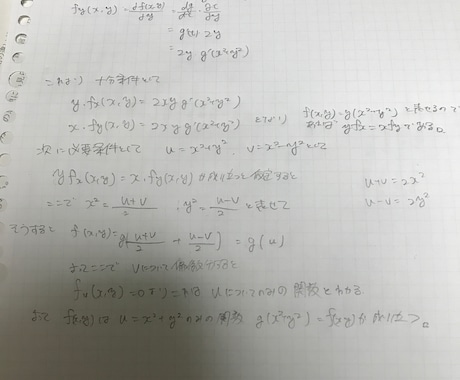 fy(x,y) = df(x,y)/dy = dg/dt · dt/dy
= g'(t) 2y
= 2y g'(x²+y²)
これより 十分条件として
y.fx(x,y) = 2xy g'(x²+y²)
x.fy(x,y) = 2xy g'(x²+y²) となり
f(x,y)=g(x²+y²) と表せるので
yfx = xfy である。
次に必要条件として u = x²+y², v = x²-y² として
yfx(x,y) = x.fy(x,y) が成り立つと仮定すると
u+v = 2x²
u-v = 2y²
ここで x² = u+v/2 , y² = u-v/2 と表せて
そうすると f(x,y)=g(u+v/2 + u-v/2) = g(u)
よってここで vについて偏微分すると
fv(x,y) = 0 より これは uについてのみの関数とわかる
よって f(x,y)は u = x²+y² のみの関数 g(x²+y²) = f(x,y)が成り立つ。